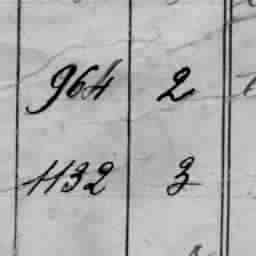 964 2
1132 3